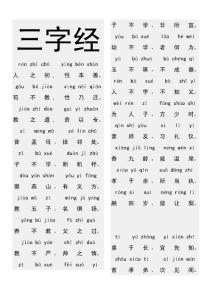 三字经
rén zhī chū xìng běn shàn
人 之 初，性 本 善。
gǒu bú jiào xìng nǎi qiān
苟 不 教，性 乃 迁。
jiào zhī dào guì yǐ zhuān
教 之 道，贵 以 专。
xī mèng mǔ zé lín chǔ
昔 孟 母，择 邻 处。
zǐ bù xué duàn jī zhù
子 不 学，断 机 杼。
dòu yān shān yǒu yì fāng
窦 燕 山，有 义 方。
jiào wǔ zǐ míng jù yáng
教 五 子，名 俱 扬。
yǎng bú jiào fù zhī guò
养 不 教，父 之 过。
jiào bù yán shī zhī duò
教 不 严，师 之 惰。
zǐ bù xué fēi suǒ yí
子 不 学，非 所 宜。
yòu bù xué lǎo hé wéi
幼 不 学，老 何 为。
yù bù zhuó bù chéng qì
玉 不 琢，不 成 器。
rén bù xué bù zhī yì
人 不 学，不 知 义。
wéi rén zǐ fāng shào shí
为 人 子，方 少 时。
qīn shī yǒu xí lǐ yí
亲 师 友，习 礼 仪。
xiāng jiǔ líng néng wēn xí
香 九 龄，能 温 席。
xiào yú qīn suǒ dāng zhí
孝 于 亲，所 当 执。
róng sì suì néng ràng lí
融 四 岁，能 让 梨。
tì yú zhǎng yí xiān zhī
弟 于 长，宜 先 知。
shǒu xiào tì cì jiàn wén
首 孝 悌，次 见 闻。